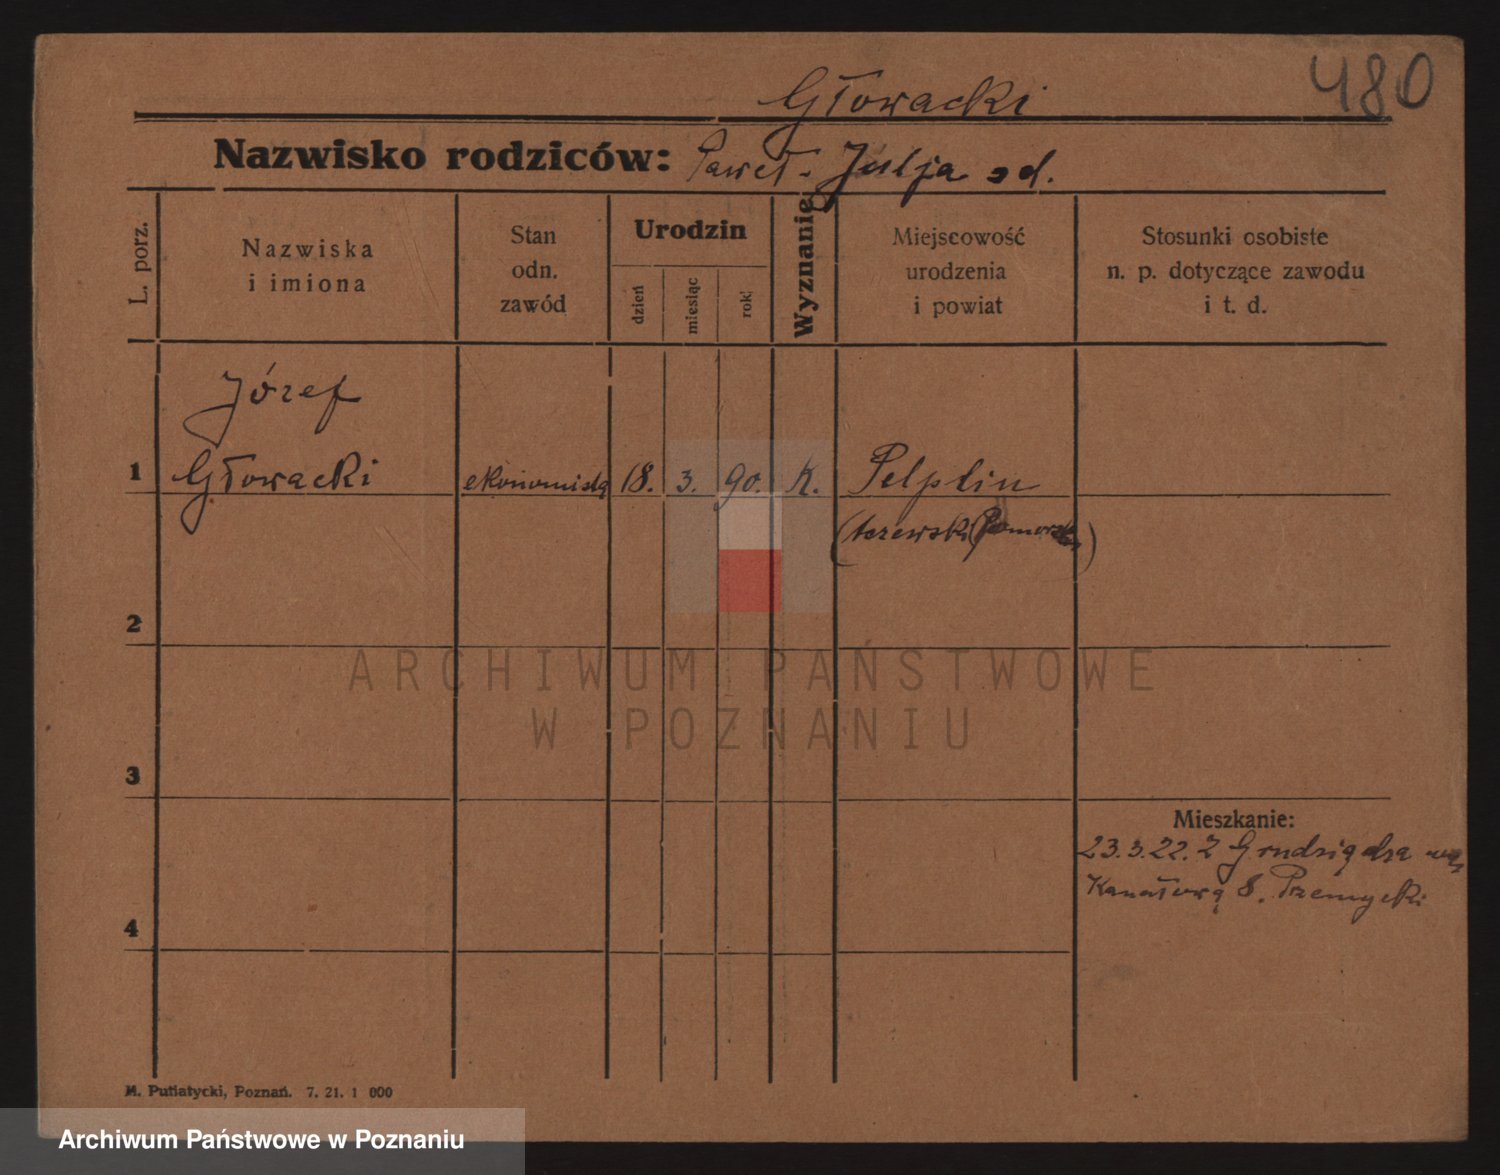 Głowacki
480
Nazwisko rodziców: Paweł - Julja
L. porz.
Nazwiska
i imiona
Stan
odn.
zawód
Urodzin
dzień
miesiąc
rok
Wyznanie
Miejscowość
urodzenia
i powiat
Stosunki osobiste
n. p. dotyczące zawodu
i t. d.
Józef
1 Głowacki ekonomista 18. 3. 90. K. Pelplin
(tczewski (Pomorski)
2
ARCHIWUM PAŃSTWOWE
W POZNANIU
3
Mieszkanie:
23.3.22. Z Grudziądza
Kanałową 8. Przemycki
4
M. Putiatycki, Poznań. 7. 21. 1 000
Archiwum Państwowe w Poznaniu